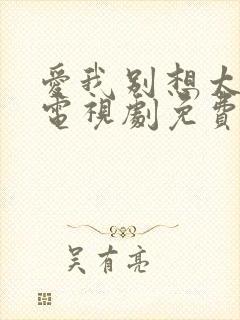 愛我別想太
電視劇免費
吴有亮